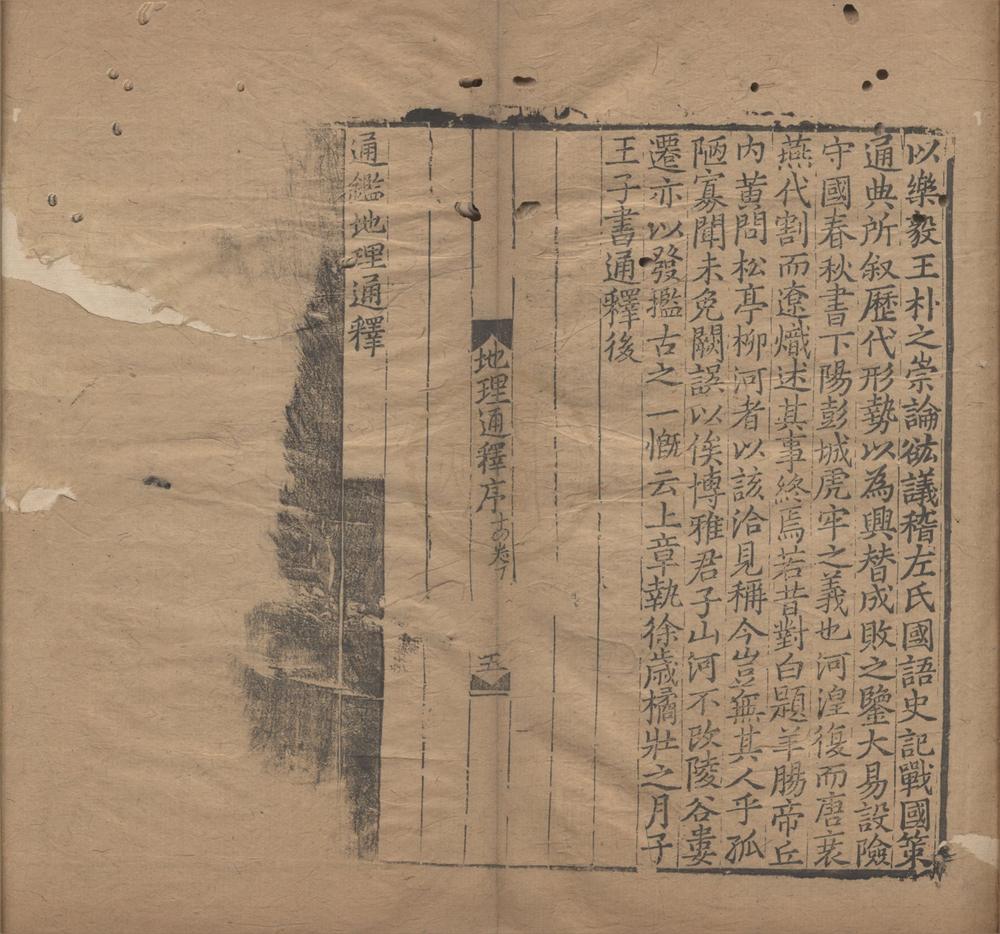 以樂毅王朴之崇論竑議稽左氏國語史記戰國策
通典所叙歷代形勢以為興替成敗之鑒大易設險
守國春秋書下陽彭城虎牢之義也河湟復而唐衰
燕代割而遼熾述其事終焉若昔對白題羊腸帝丘
內黃問松亭柳河者以該洽見稱今豈無其人乎孤
陋寡聞未免闕誤以俟博雅君子山河不改陵谷婁
遷亦以發擥古之一慨云上章執徐歲橘壯之月子
王子書通釋後
地理通釋序
五
通鑑地理通釋